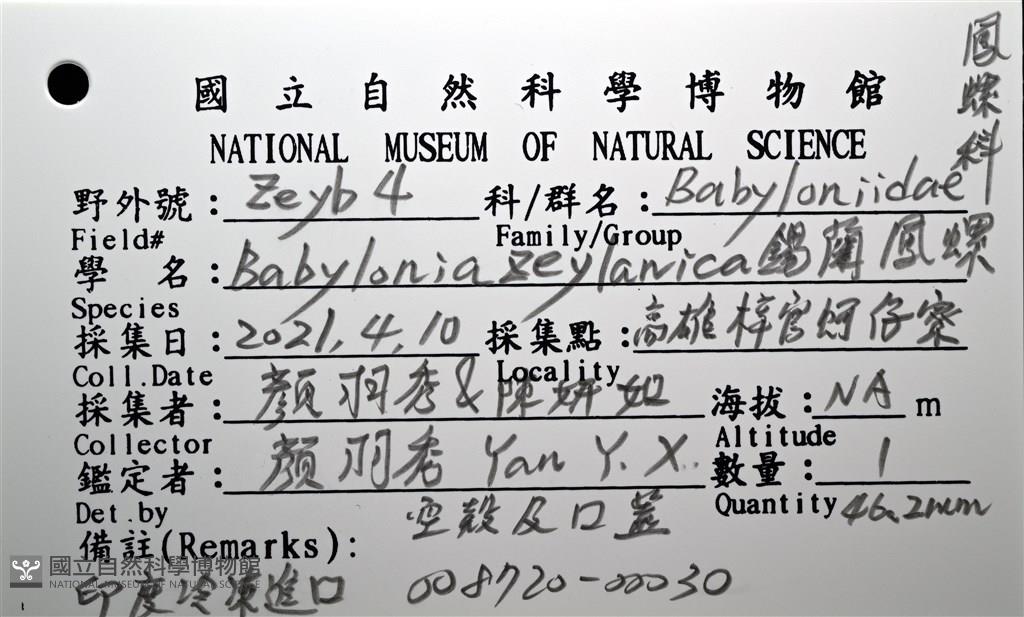 鳳螺科
國立自然科學博物館
NATIONAL MUSEUM OF NATURAL SCIENCE
野外號：Zeyb 4 科/群名：Babyloniidae
Field# Family/Group
學名：Babylonia zeylanica 錫蘭鳳螺
Species
採集日：2021,4,10 採集點：高雄梓官蚵仔寮
Coll.Date Locality
採集者：顏羽秀&陳妍如 海拔：NA m
Collector Altitude
鑑定者：顏羽秀 Yan Y. X. 數量：1
Det.by Quantity 46.2mm
空殼及口蓋
備註(Remarks):
印度冷凍進口 008720-00030
國立自然科學博物館
NATIONAL MUSEUM OF NATURAL SCIENCE